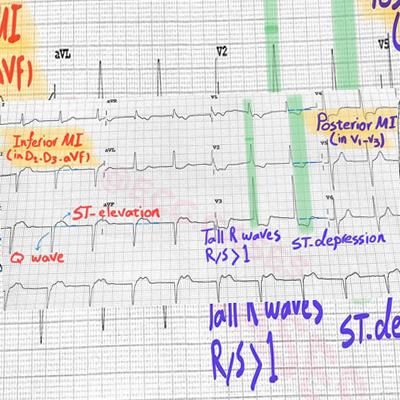 MI
aVL
V2
V5
aVF)
aVR
V1
V4
Inferior MI
(in D2-D3-aVF)
Posterior MI
(in V1-V3)
aVL
V2
V5
ST-elevation
aVF
V3
V6
Q wave
Tall R waves
R/S>1
ST-depression
Tall R waves
R/S>1
ST.de